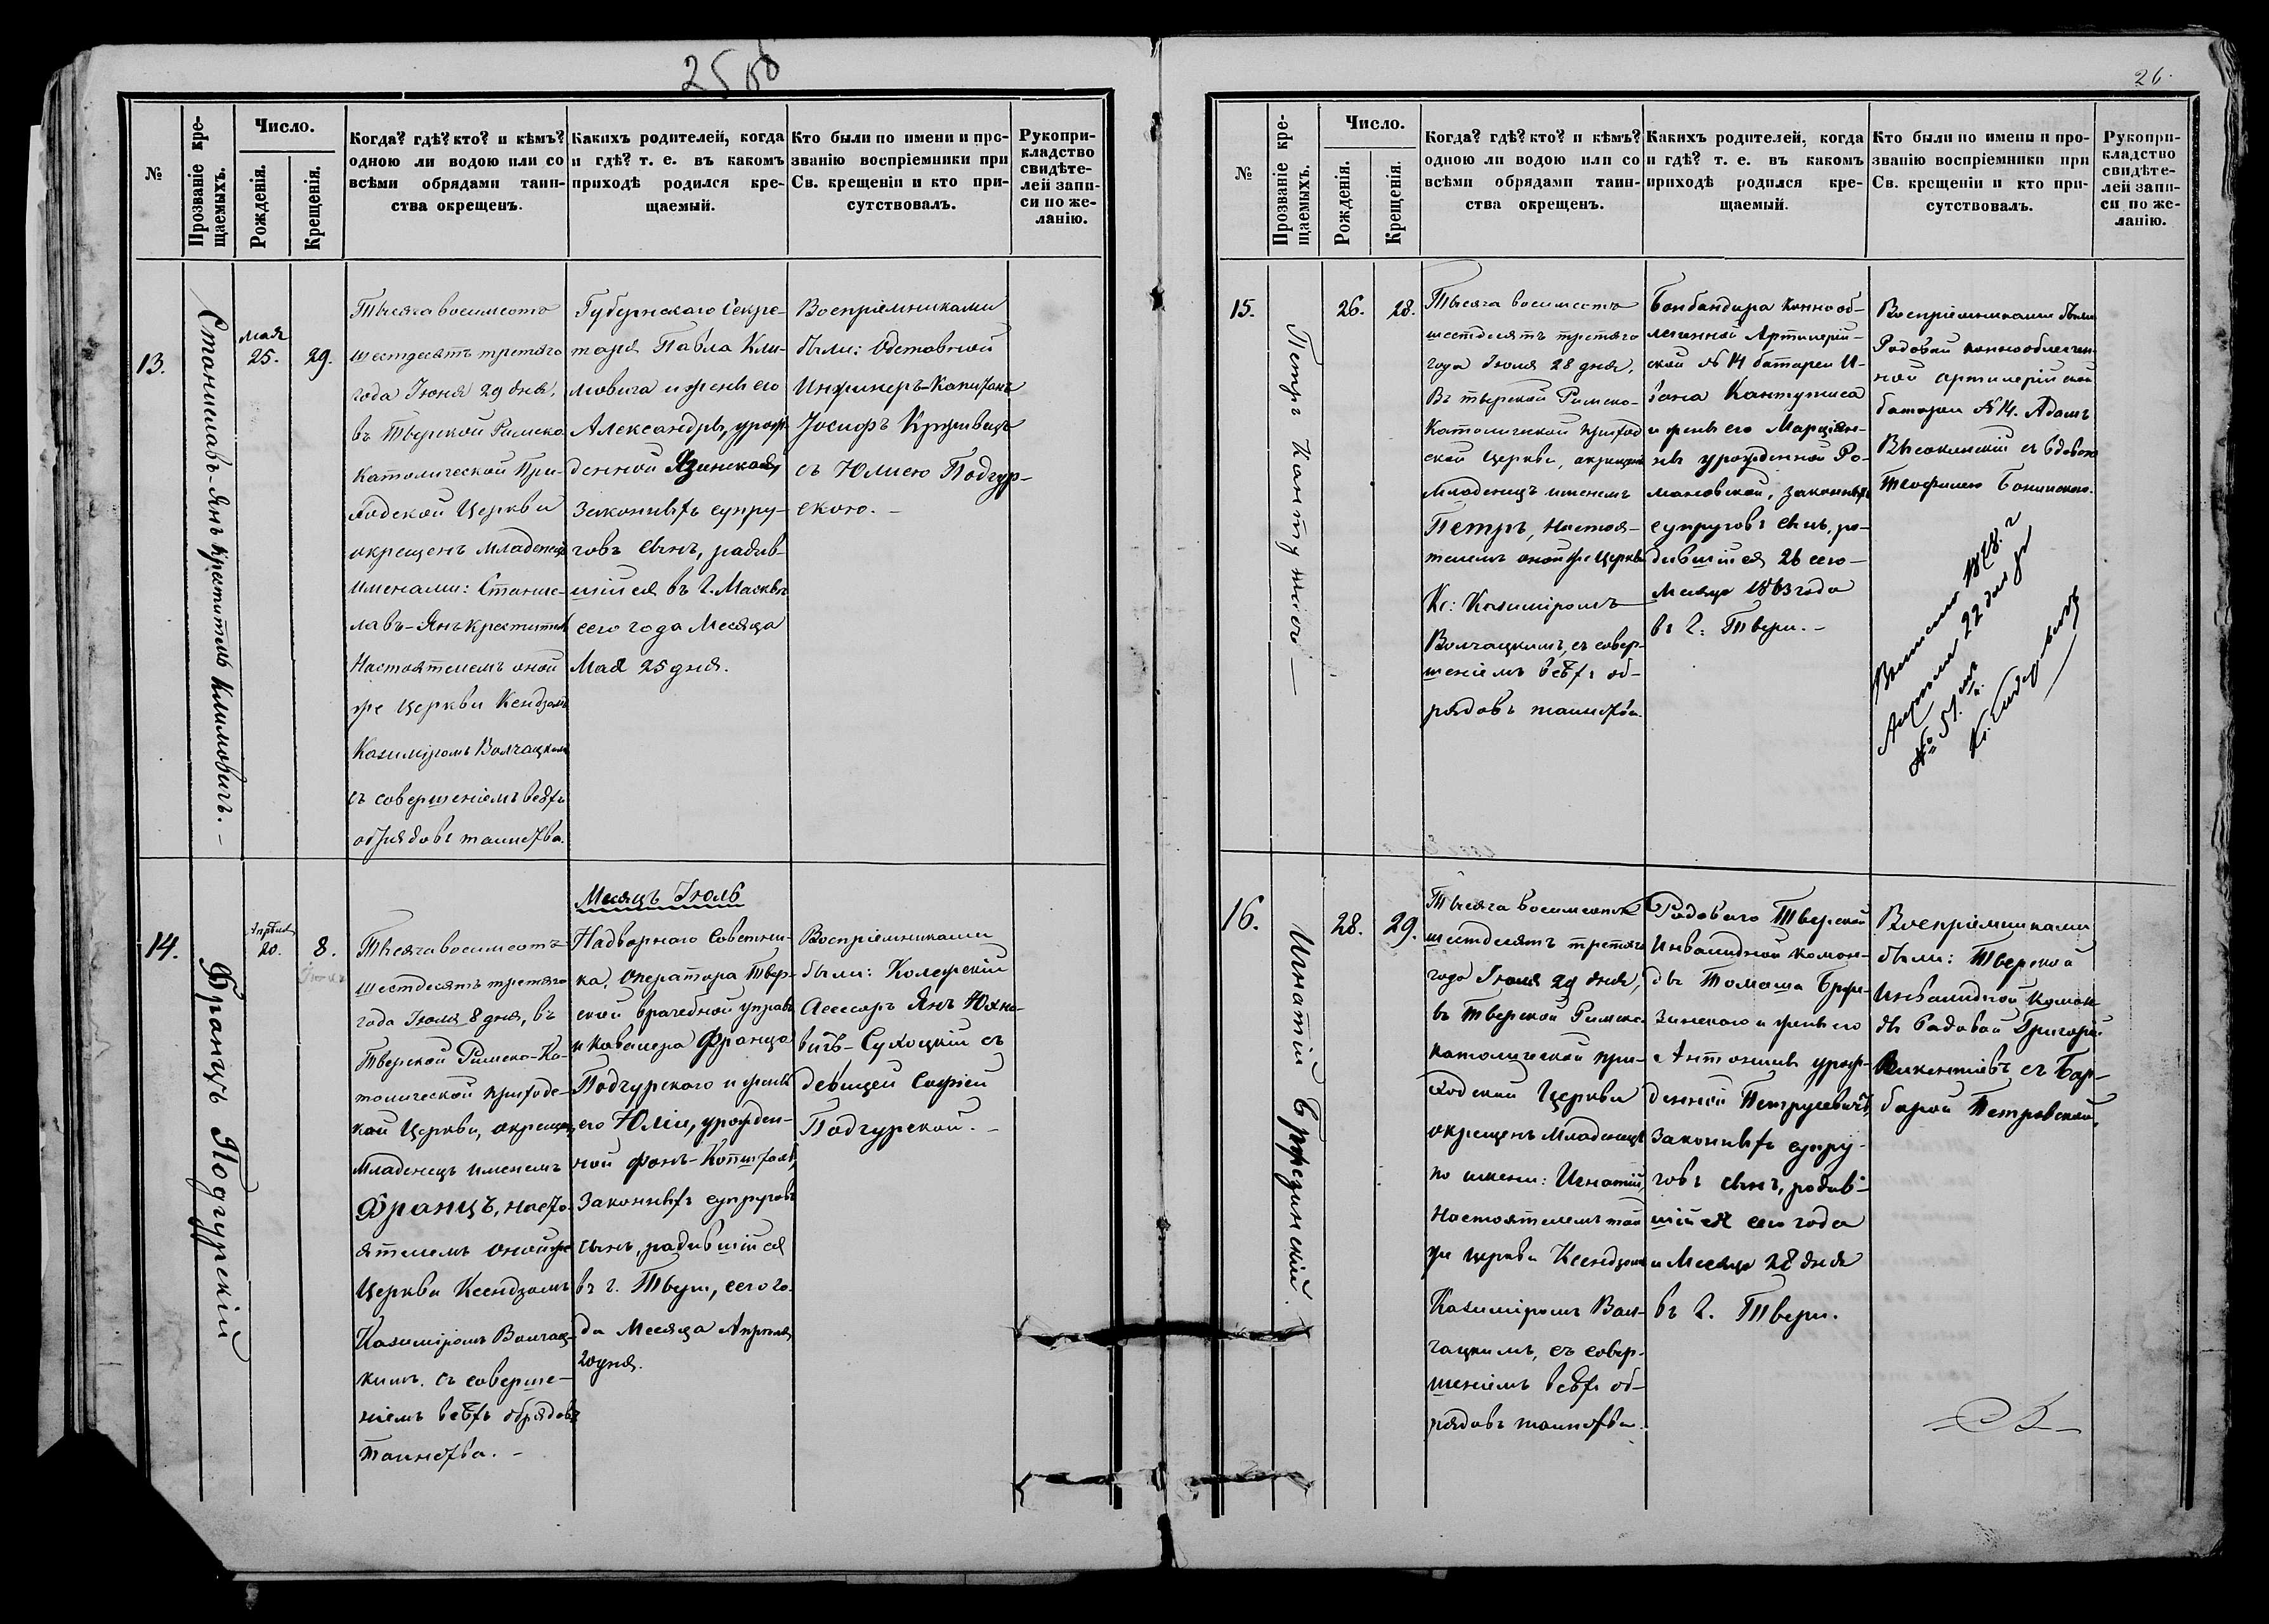 25 об
№
Прозваніе кре-
щаемыхъ.
Число.
Рожденія.
Крещенія.
Когда? гдѣ? кто? и кѣмъ?
одною ли водою или со
всѣми обрядами таин-
ства окрещенъ.
Какихъ родителей, когда
и гдѣ? т. е. въ какомъ
приходѣ родился кре-
щаемый.
Кто были по имени и про-
званію воспріемники при
Св. крещеніи и кто при-
сутствовалъ.
Рукопри-
кладство
свидѣте-
лей запи-
си по же-
ланію.
13.
Станиславъ-Янъ Креститель Климовичъ. –
мая
25.
29.
Тысяча восимсотъ
шестдесятъ третяго
года Іюня 29 дня,
въ Тверской Римско
Католической При-
ходской Церкви
окрещенъ Младенецъ
Именами: Станис-
лавъ-Янъ Креститель
Настоятелемъ оной
же Церкви Ксендзомъ
Казиміромъ Волчацкимъ
съ совершеніемъ всѣхъ
обрядовъ таинства.
Губернскаго Секре-
таря Павла Кли-
мовича и жены его
Александры, урож-
денной Язинской,
Законныхъ супру-
говъ сынъ, родив-
шійся въ г. Москвѣ
сего года Месяца
Мая 25 дня.
Воспріемниками
были: Одставной
Инжинеръ-Капитанъ
Іосифъ Кржывецъ
съ Юліею Подгур-
скою. –
Месяцъ Іюль
14.
Францъ Подгурскій
Апрѣля
20.
8.
Іюля
Тысяча восимсотъ
шестдесятъ третяго
года Іюля 8 дня, въ
Тверской Римско-Ка-
толической приходс-
кой Церкви, окрещенъ
Младенецъ именемъ
Францъ, насто-
ятелемъ оной же
Церкви Ксендзомъ
Казиміромъ Волчац-
кимъ. съ соверше-
ніемъ всѣхъ обрядовъ
таинства. –
Надворнаго Совѣтни-
ка, Оператора Твер-
ской врачебной управы
и Кавалера Франца
Подгурскаго и жены
его Юліи, урожден-
ной фонъ-
Законныхъ супруговъ
сынъ, родившійся
въ г. Твери, сего го-
да Месяца Апрѣля
20 дня.
Воспріемниками
были: Колежскій
Асессоръ Янъ Юхно-
вичъ-Сухоцкій съ
девицей Софіей
Подгурской. –
26.
№
Прозваніе кре-
щаемыхъ.
Число.
Рожденія.
Крещенія.
Когда? гдѣ? кто? и кѣмъ?
одною ли водою или со
всѣми обрядами таин-
ства окрещенъ.
Какихъ родителей, когда
и гдѣ? т. е. въ какомъ
приходѣ родился кре-
щаемый.
Кто были по имени и про-
званію воспріемники при
Св. крещеніи и кто при-
сутствовалъ.
Рукопри-
кладство
свидѣте-
лей запи-
си по же-
ланію.
15.
Петръ
26.
28.
Тысяча восимсотъ
шестдесятъ третяго
года Іюля 28 дня,
Въ тверской Римско-
Католической приход
ской Церкви, окрещенъ
Младенецъ именемъ
Петръ, Настоя-
телемъ оной же Церкви
Кс: Казиміромъ
Волчацкимъ, съ совер-
шеніемъ всѣхъ об-
рядовъ таинства.
Бонбандира Конно об-
легченной Артилерій-
ской № 14 батареи И-
вана
и жены его Марціян-
ны урожденной Ро-
мановской, законныхъ
супруговъ сынъ, ро-
дившійся 26 сего
Месяца 1863 года
въ г: Твери. –
Воспріемниками были
Радовой конно облегчен-
ной артилерійской
батареи № 14. Адамъ
Высокинскій съ вдовою
Теофилею
1878 г
Апрѣля 22 дня
№ 51.
16.
Игнатій Бржезинскій.
28.
29.
Тысяча восимсотъ
шестдесятъ третяго
года Іюля 29 дня,
въ Тверской Римско-
католической при-
ходской Церкви
окрещенъ Младенецъ
по имени: Игнатій,
Настоятелемъ той
же церкви Ксендзомъ
Казиміромъ Вол-
чацкимъ, съ совер-
шеніемъ всѣхъ об-
рядовъ таинства.
Радоваго Тверской
Инвалидной коман-
ды Томаша Брже-
зинскаго и жены его
Антонины урож-
денной Петрусевичъ,
Законныхъ супру-
говъ сынъ, родив-
шійся сего года
и Месяца 28 дня
въ г. Твери.
Воспріемниками
были: Тверской
Инвалидной Коман-
ды Радовой Григорій
Викентіевъ съ Бар-
барой Петровской.